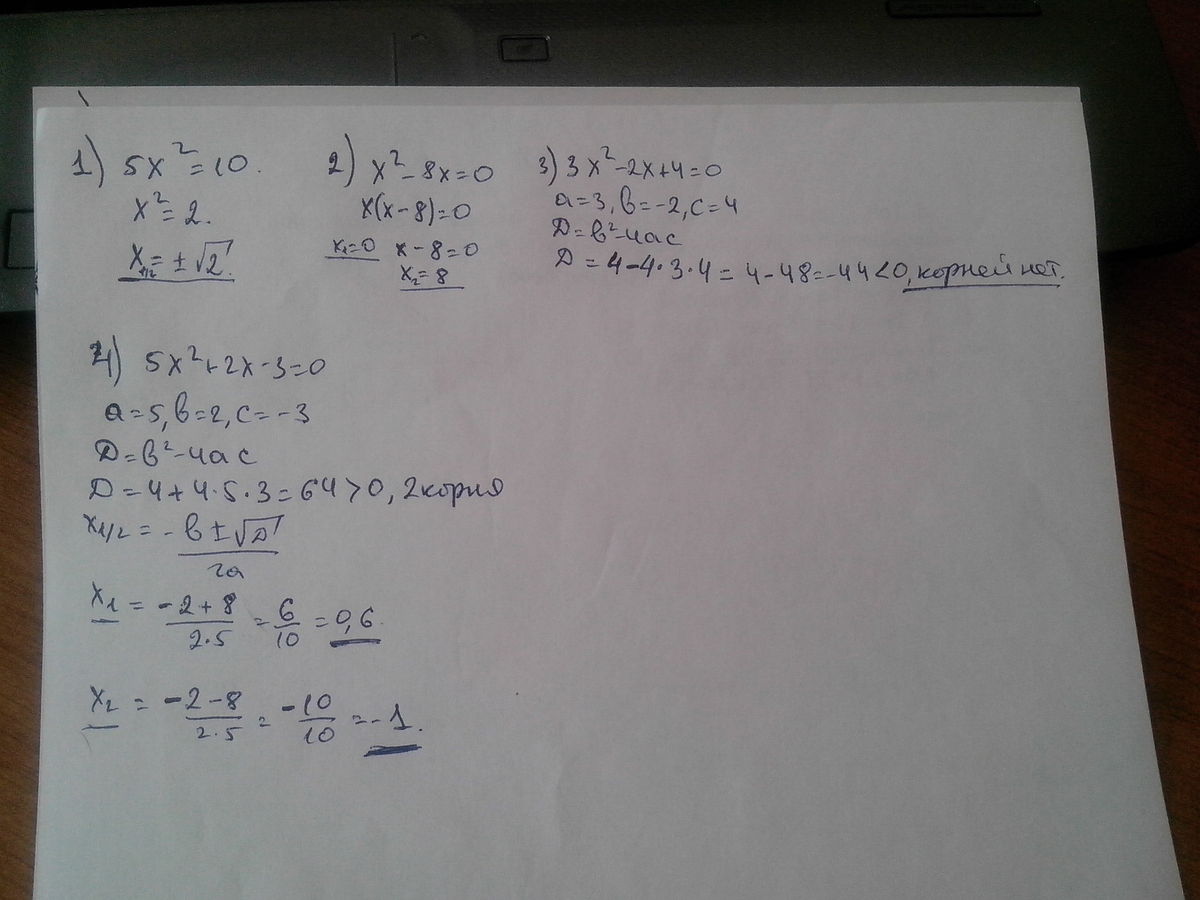 1) 5x² = 10.
x² = 2.
x₁/₂ = ± √2.
2) x² - 8x = 0
x(x - 8) = 0
x₁ = 0 x - 8 = 0
x₂ = 8
3) 3x² - 2x + 4 = 0
a = 3, в = -2, c = 4
Д = в² - 4ac
Д = 4 - 4·3·4 = 4 - 48 = -44 < 0, корней нет.
4) 5x² + 2x - 3 = 0
a = 5, в = 2, c = -3
Д = в² - 4ac
Д = 4 + 4·5·3 = 64 > 0, 2 корня
x₁/₂ = -в ± √Д / 2a
x₁ = -2 + 8 / 2·5 = 6/10 = 0,6.
x₂ = -2 - 8 / 2·5 = -10/10 = -1.